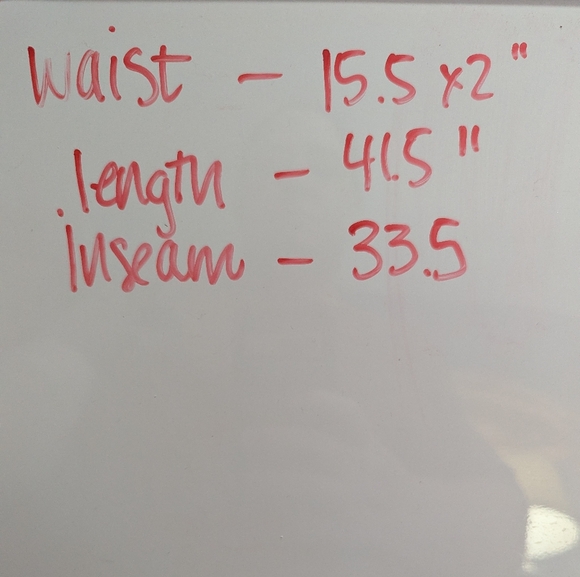 waist - 15.5 x2"
length - 41.5"
Inseam - 33.5